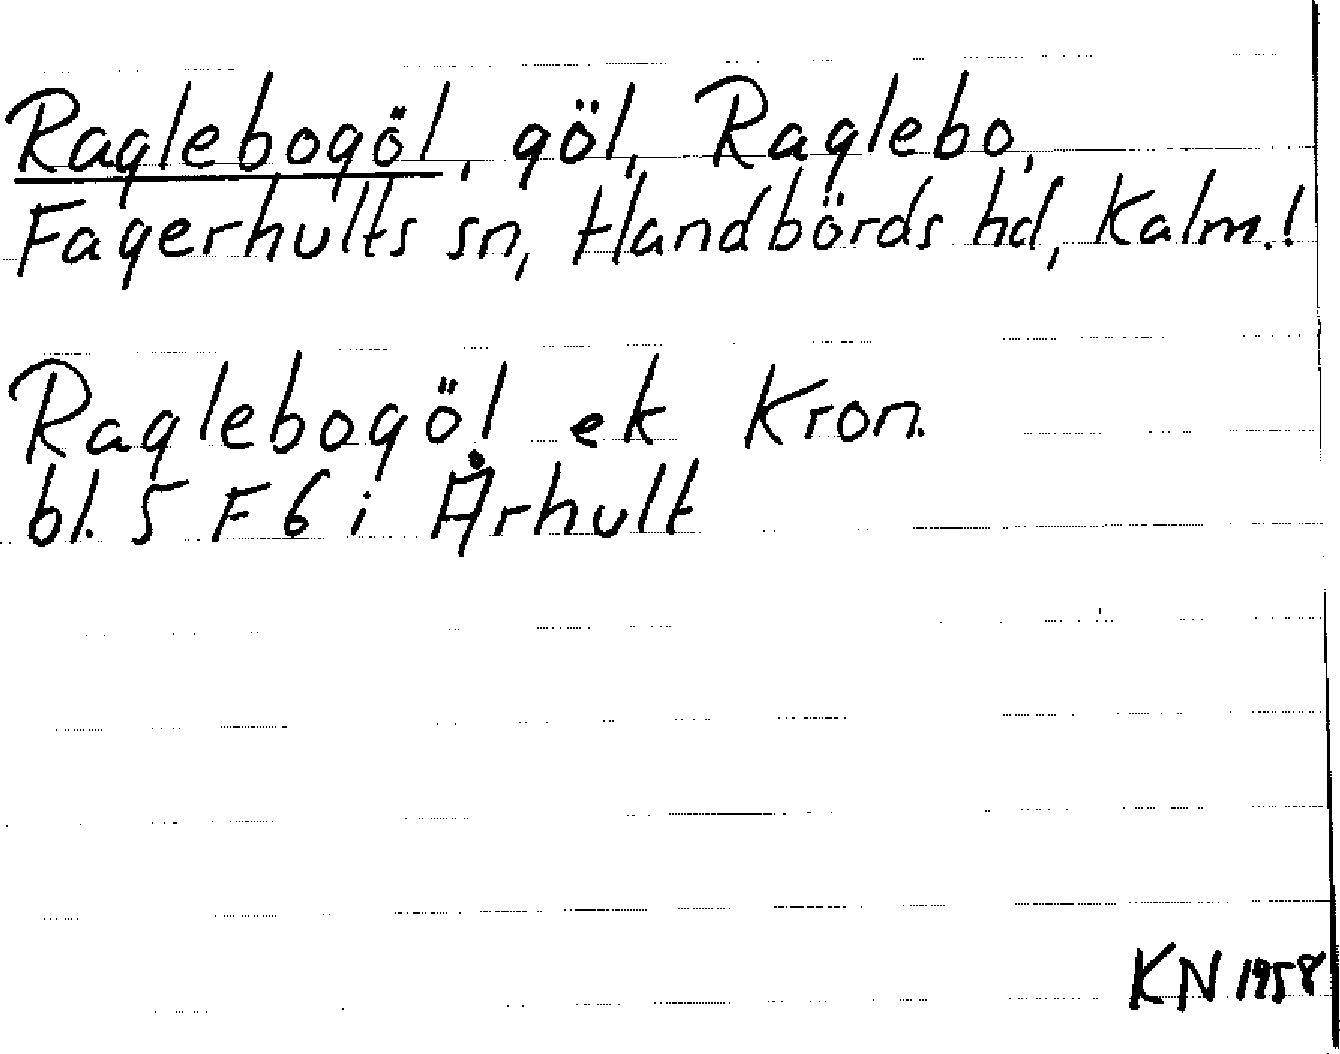 Raglebogöl, göl, Raglebo,
Fagerhults sn, Handbörds hd, Kalm.!
Raglebogöl ek Kron.
bl. 5 F 6 i Århult
KN 1958